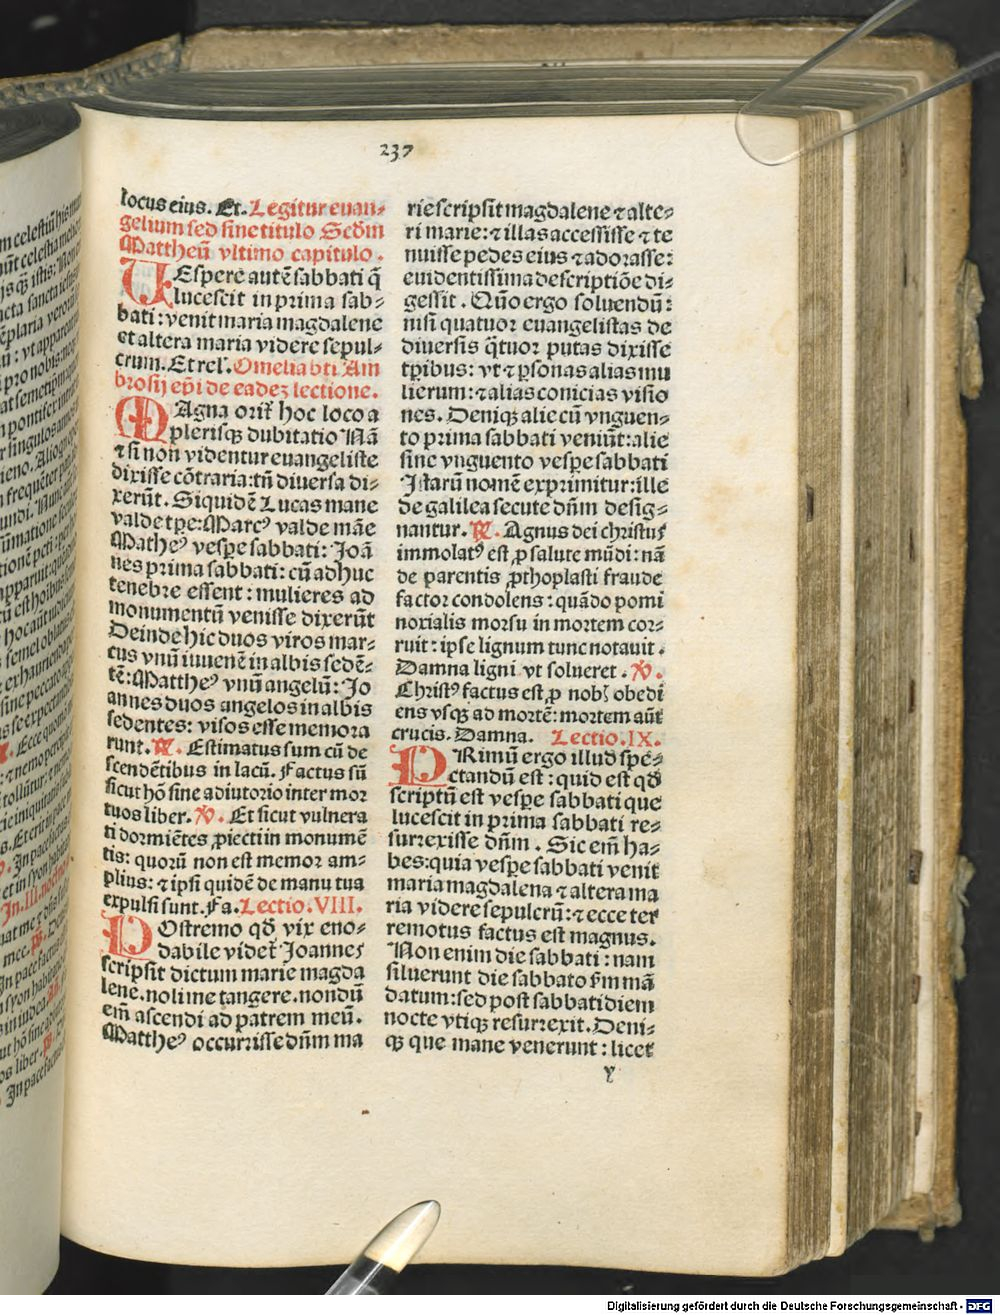 237
locus eius. Et. Legitur euan⸗
gelium sed sine titulo Scḋm
Mattheū vltimo capitulo.
VEspere autē sabbati q̄
lucescit in prima sab⸗
bati: venit maria magdalene
et altera maria videre sepul⸗
crum. Et reł. Omelia bti Am
brosij epi de eadeʒ lectione.
MAgna orit̄ hoc loco a
plerisqʒ dubitatio Nā
⁊ si non videntur euangeliste
dixisse cōtraria: tn̄ diuersa di⸗
xerūt. Siquidē Lucas mane
valde tpe: Marcꝰ valde māe
Matheꝰ vespe sabbati: Joā
nes prima sabbati: cū adhuc
tenebre essent: mulieres ad
monumentū venisse dixerūt
Deinde hic duos viros mar⸗
cus vnū iuuenē in albis sedē⸗
tē: Mattheꝰ vnū angelū: Jo
annes duos angelos in albis
sedentes: visos esse memora
runt. ℟. Estimatus sum cū de
scendētibus in lacū. Factus sū
sicut hō sine adiutorio inter mor
tuos liber. ℣. Et sicut vulnera
ti dormiētes ꝓiecti in monumē
tis: quorū non est memor am⸗
plius: ⁊ ipsi quidē de manu tua
expulsi sunt. Fa. Lectio. VIII.
POstremo qḋ vix eno⸗
dabile videt̄ Joannes
scripsit dictum marie magda
lene. noli me tangere. nondū
em̄ ascendi ad patrem meū.
Mattheꝰ occurrisse dn̄m ma
rie scripsit magdalene ⁊ alte⸗
ri marie: ⁊ illas accessisse ⁊ te
nuisse pedes eius ⁊ adorasse:
euidentissima descriptiōe di⸗
gessit. Quō ergo soluendū:
nisi quatuor euangelistas de
diuersis q̄tuor putas dixisse
tꝑibus: vt ⁊ ꝑsonas alias mu
lierum: ⁊ alias conicias visio
nes. Deniqʒ alie cū vnguen⸗
to prima sabbati veniūt: alie
sine vnguento vespe sabbati
Istarū nomē exprimitur: ille
de galilea secute dn̄m desig⸗
nantur. ℟. Agnus dei christus
immolatꝰ est ꝓ salute mūdi: nā
de parentis ꝓthoplasti fraude
factor condolens: quādo pomi
noxialis morsu in mortem cor⸗
ruit: ipse lignum tunc notauit.
Damna ligni vt solueret. ℣.
Christꝰ factus est ꝓ nobꝭ obedi
ens vsqʒ ad mortē: mortem aūt
crucis. Damna. Lectio. IX.
PRimū ergo illud spe⸗
ctandū est: quid est qḋ
scriptū est vespe sabbati que
lucescit in prima sabbati re⸗
surrexisse dn̄m. Sic em̄ ha⸗
bes: quia vespe sabbati venit
maria magdalena ⁊ altera ma
ria videre sepulcrū: ⁊ ecce ter
remotus factus est magnus.
Non enim die sabbati: nam
siluerunt die sabbato ẜm mā
datum: sed post sabbati diem
nocte vtiqʒ resurrexit. Deni⸗
qʒ que mane venerunt: licet
y
Digitalisierung gefördert durch die Deutsche Forschungsgemeinschaft - DFG